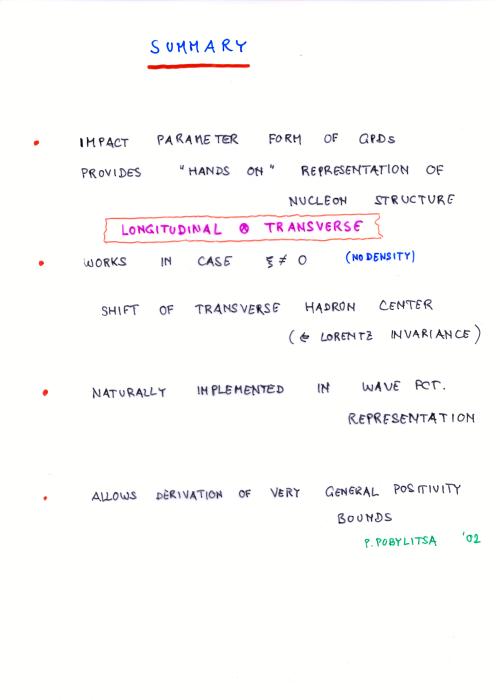 SUMMARY
• IMPACT PARAMETER FORM OF GPDs
PROVIDES "HANDS ON" REPRESENTATION OF
NUCLEON STRUCTURE
LONGITUDINAL ⊗ TRANSVERSE
• WORKS IN CASE ξ ≠ 0 (NO DENSITY)
SHIFT OF TRANSVERSE HADRON CENTER
(⇐ LORENTZ INVARIANCE)
• NATURALLY IMPLEMENTED IN WAVE FCT.
REPRESENTATION
• ALLOWS DERIVATION OF VERY GENERAL POSITIVITY
BOUNDS
P. POBYLITSA '02